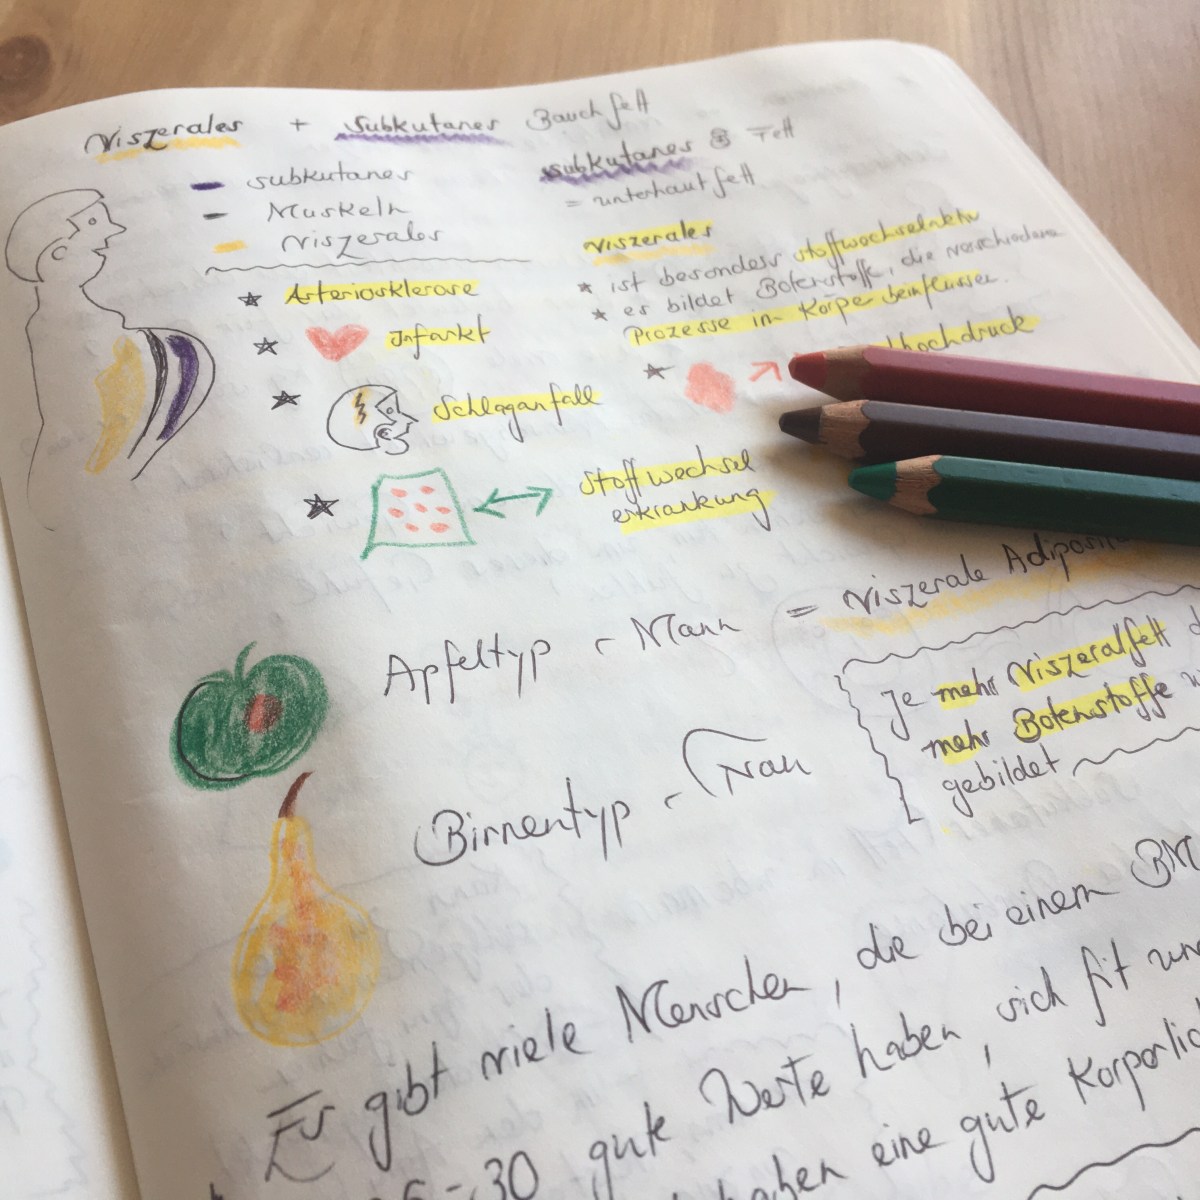 Viszerales + Subkutanes Bauchfett
subkutanes
Muskeln
Viszerales
Arteriosklerose
Infarkt
Schlaganfall
Stoffwechsel
erkrankung
subkutanes Fett
= unterhautfett
Viszerales
ist besonders stoffwechselaktiv
es bildet Botenstoffe, die verschiedene
Prozesse im Körper beinflussen.
hochdruck
Apfeltyp - Mann = Viszerale
Je mehr Viszeralfett
mehr Botenstoffe
gebildet
Birnentyp - Frau
Es gibt viele Menschen, die bei einem
30 gute Werte haben, sich fit
haben eine gute